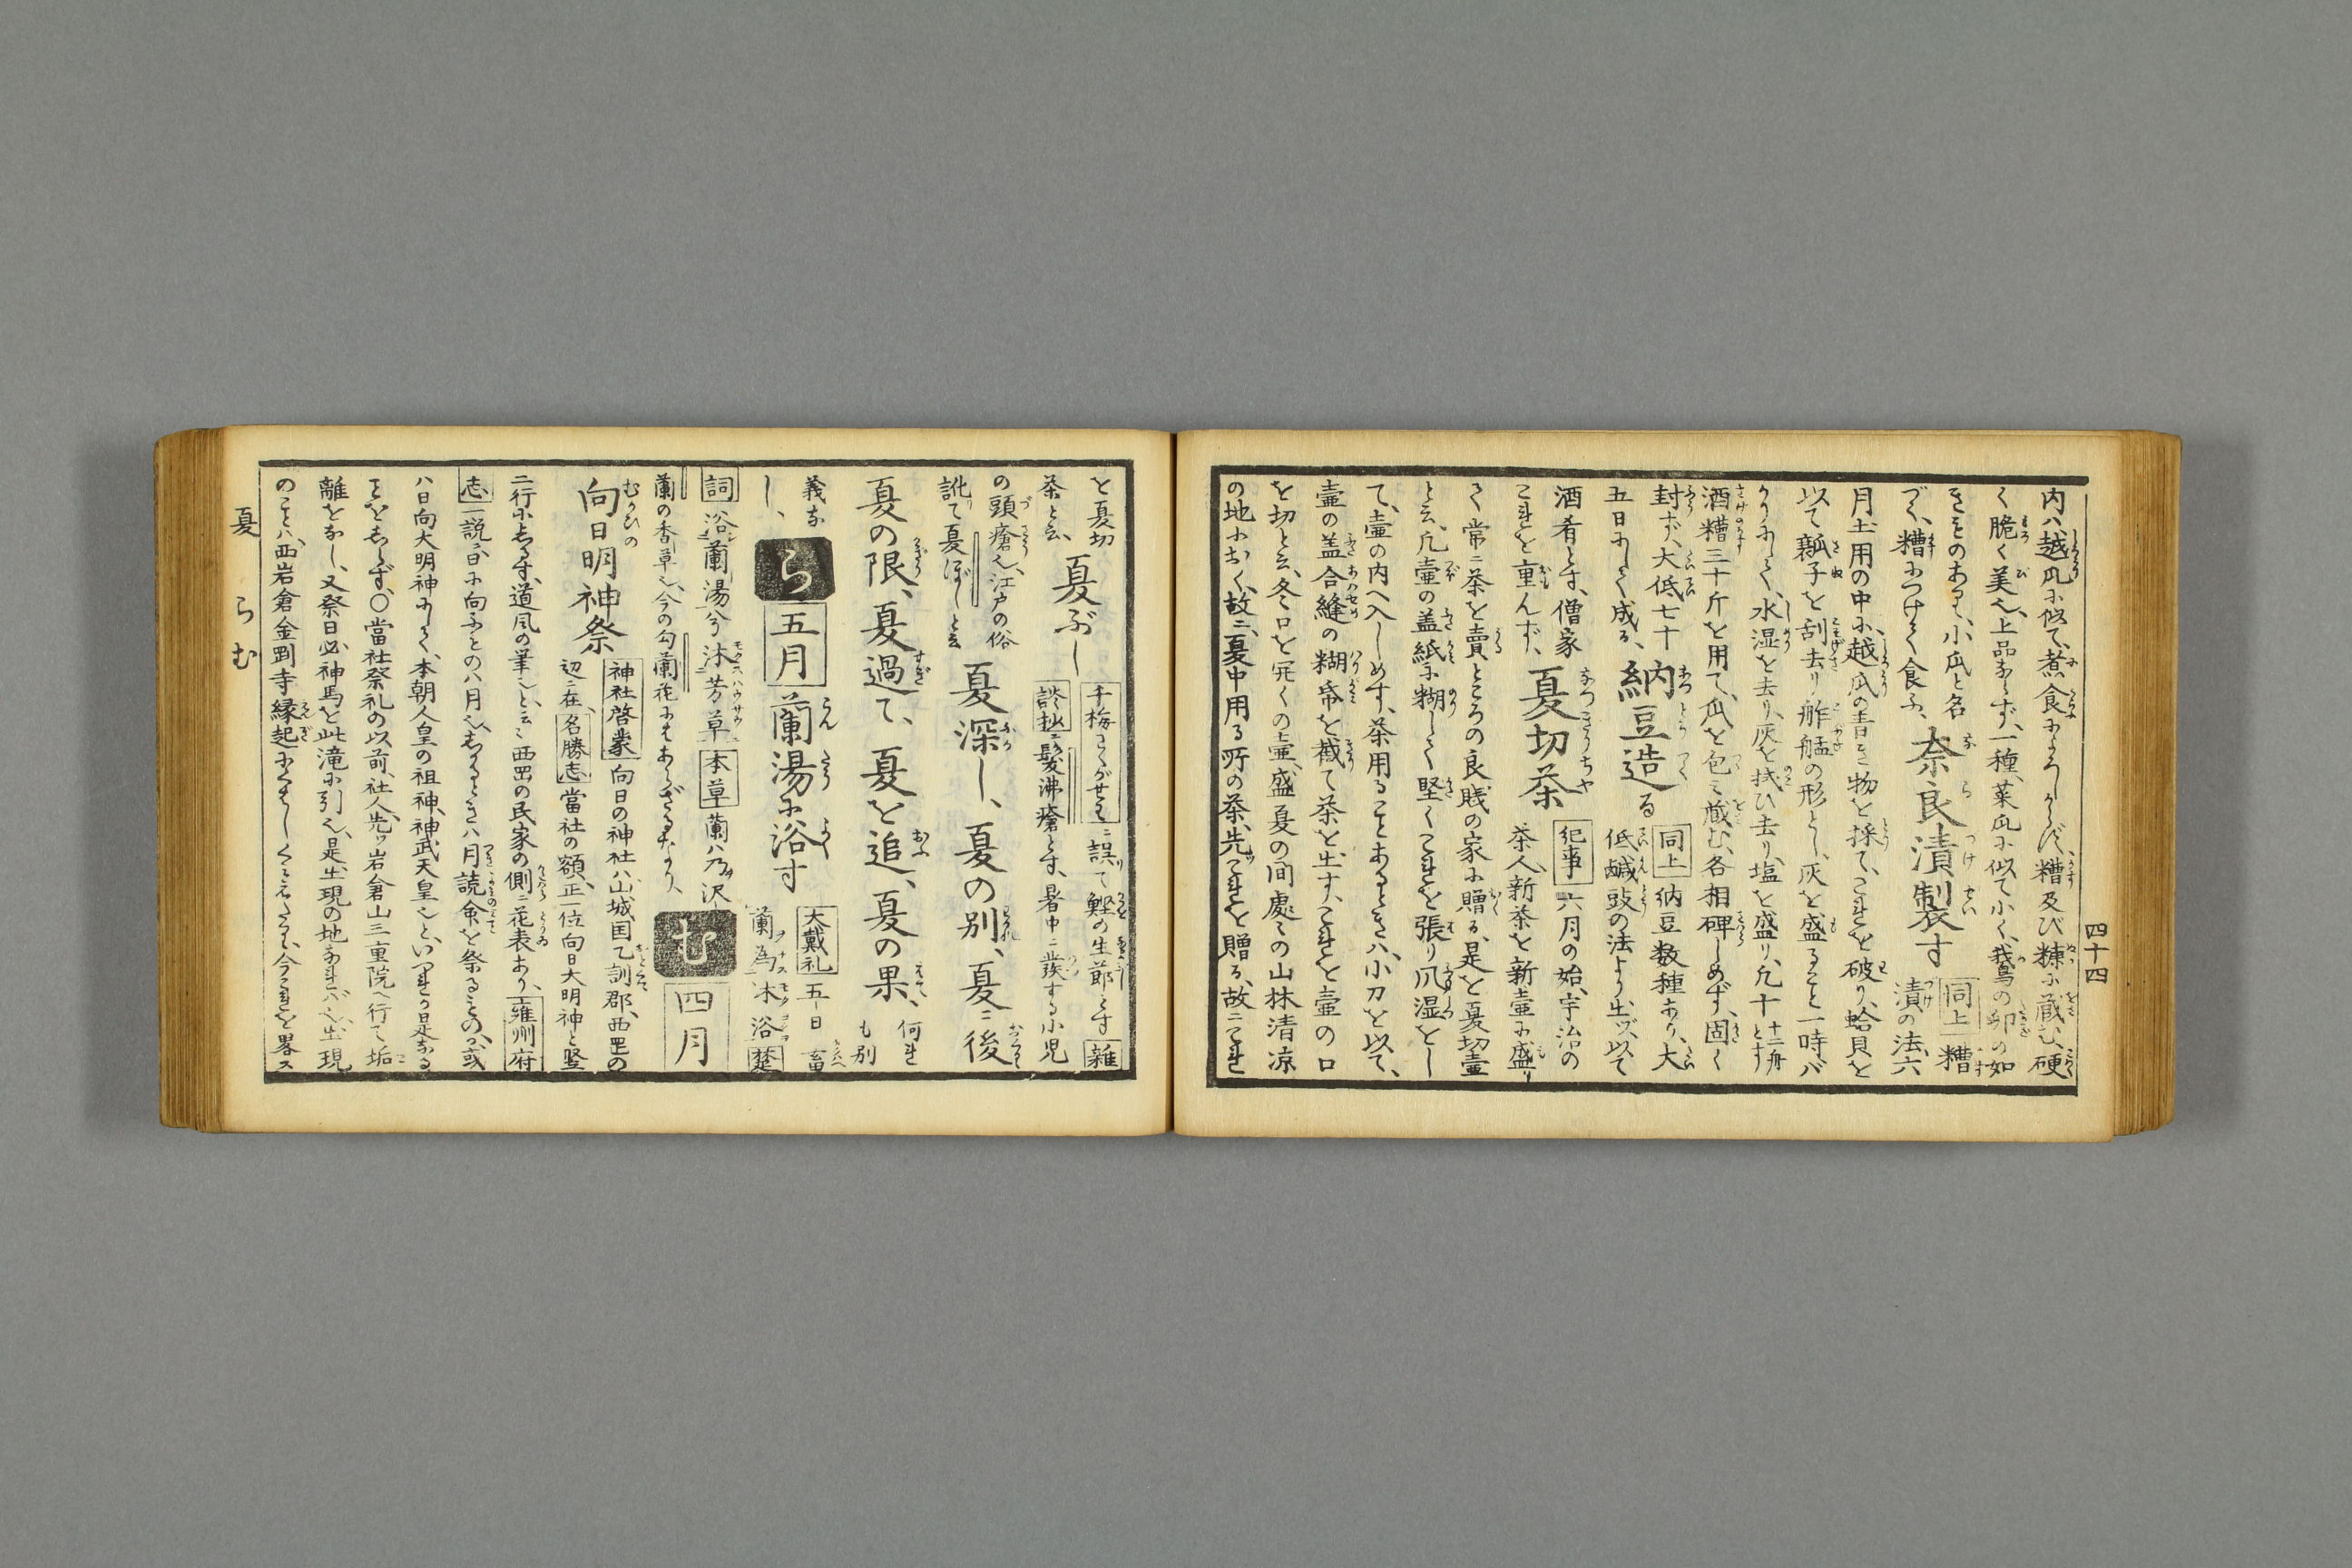 四十四
内ハ越瓜に似て、煮食によろしからず、糟及び糠に蔵む、硬
く脆く美也、上品ならず、一種、菜瓜に似て小く、鵞の卵の如
きものあり、小瓜と名
づく、糟につけて食ふ、
奈良漬製す
同上 糟
漬の法、六
月土用の中に、越瓜の青き物を採て、これを破り、蛤貝を
以て瓤子を刮去り舴艋の形とし、灰を盛ること一時バ
かりにして、水湿を去り、灰を拭ひ去り、塩を盛り、凡十 十二舟とす
酒糟三十斤を用て、瓜を包ミ蔵む、各相碑しめず、固く
封ず、大低七十
五日にして成る、
納豆造る
同上 納豆数種あり、大
低鹹豉の法より出ヅ、以て
酒肴とす、僧家
これを重んず、
夏切茶
紀事 六月の始、宇治の
茶人新茶を新壷に盛り
て常ニ茶を賣ところの良賎の家に贈る、是を夏切壷
と云、凡壷の盖紙に糊して堅くこれを張り爪湿をし
て、壷の内へ入しめす、茶用ることあるときハ、小刀を以て、
壷の盖合縫の糊帋を截て茶を出す、これを壷の口
を切と云、冬口を開くの壷、盛夏の間處々の山林清凉
の地におく、故ニ夏中用る所の茶、先ヅこれを贈る、故ニこれ
を夏切
茶と云、
夏ぶし
千梅こくがせも ニ誤て鰹の生節とす 雑
談抄ニ髪沸瘡とす、暑中ニ發する小児
の頭瘡也、江戸の俗
訛て夏ぼしと云
夏深し、夏の別、夏ニ後
夏の限、夏過て、夏を追、夏の果、
何れ
も別
義な
し、
ら
五月
蘭湯に浴す
大戴礼 五日畜
蘭為沐浴 楚
詞 浴蘭湯兮沐芳草 本草 蘭ハ乃沢
蘭の香草也、今の勾蘭花にもあらざるなり、
む
四月
向日明神祭
神社啓蒙 向日の神社ハ山城国乙訓郡、西罡の
辺ニ在、名勝志 當社の額、正一位向日大明神と竪
二行に書す、道凨の筆也と云ミ西罡の民家の側ニ花表あり、雍州府
志 一説ニ日に向ふとの八月也、しかるときハ月読命を祭るものか、或
ハ日向大明神にして、本朝人皇の祖神、神武天皇也と、いつれか是なる
ことをしらず、〇當社祭礼の以前、社人先ヅ岩倉山三重院へ行て垢
離をなし、又祭日必神馬を此滝に引く、是出現の地なれバ也、出現
のことハ、西岩倉金剅寺縁起にくはしく云たり、今これを畧ス
夏 らむ